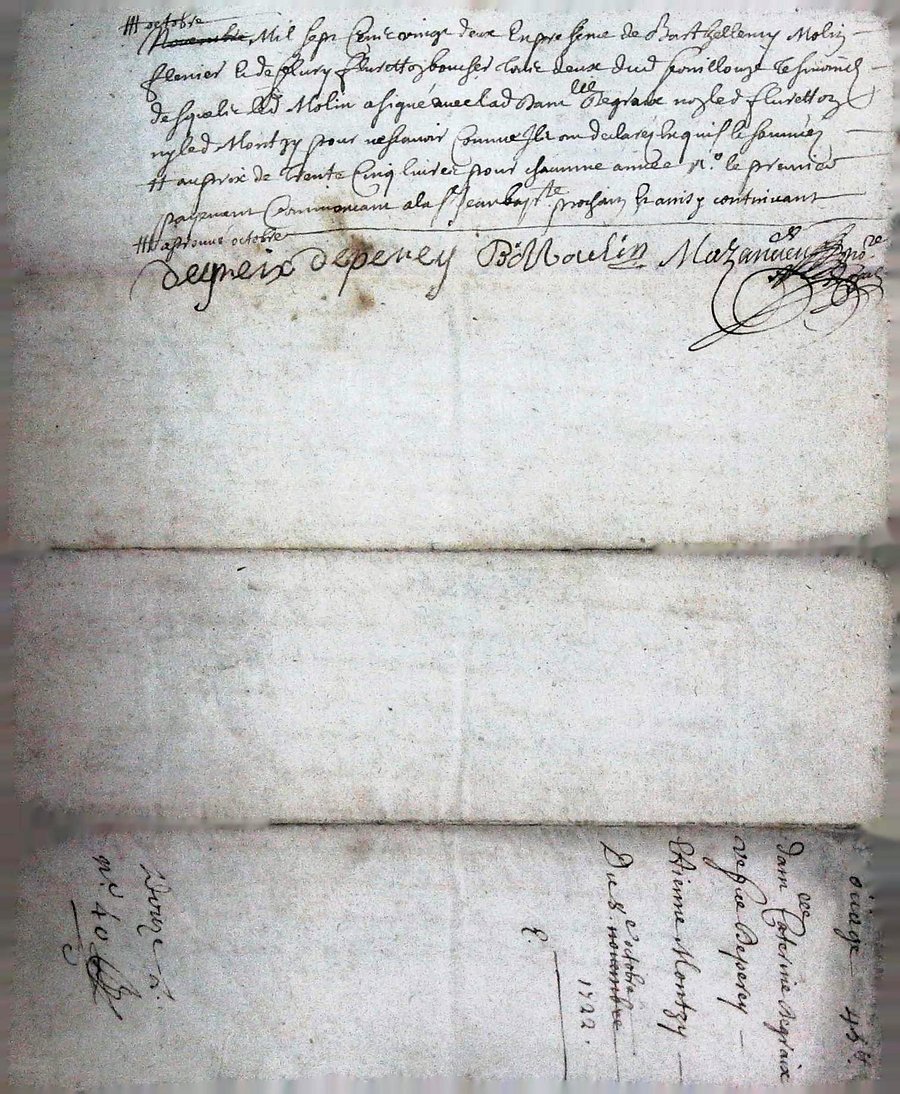 # octobre
Novembre Mil sept Cent vingt deux En presence de Barthellemy Molin
et de fleury flurettoz boucher tous deux dud pouillouze tesmoins
desquels led Molin a signé avec lad dam^lle Degraix non led flurettoz
ny led Montzy pour ne scavoir Comme Ils ont declaré Enquis et sommés
# au prix de trente Cinq livres pour chacunne année le premier
payement Commencant a la S^t Jean bap^te prochain Et ainsy continuant
# aprouvé octobre
degreix deperey B Moulin Mazancieu no^re
oüage 45^tt.
dam^lle Caterine degraix
vefve deperey
Etienne Montzy
Du 8^e octobre
novambre
1722.
E.
Douze s.
n^o. 40